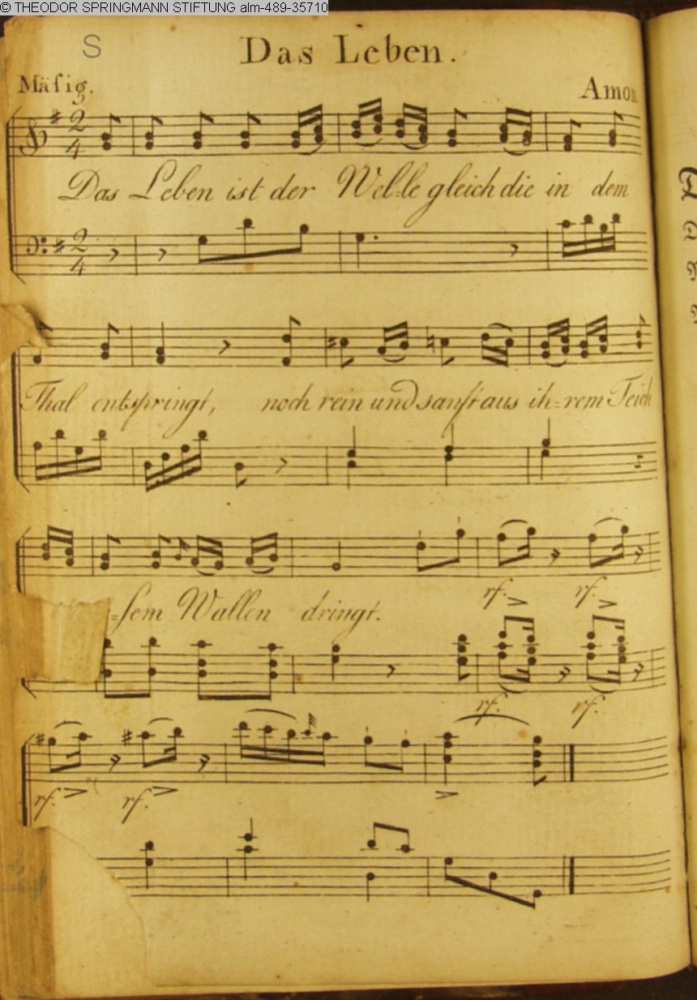 © THEODOR SPRINGMANN STIFTUNG alm-489-35710
S
Das Leben.
Mäsig.
Amon
2 4
Das Leben ist der Wel-le gleich die in dem
2 4
Thal entspringt, noch rein und sanft aus ih=rem Teich
=sem Wallen dringt.
rf. rf.
rf. rf.
rf. rf.